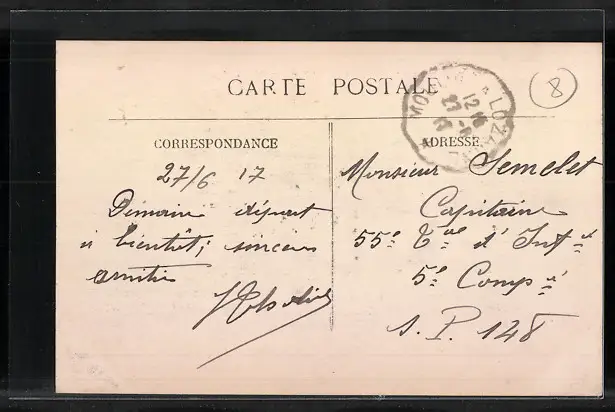 CARTE POSTALE
8
CORRESPONDANCE
27/6 17
Demain départ
à bientôt, sincère
amitié
ADRESSE
Monsieur Semelet
Capitaine
55e d'Inf
5e Comp
S. P. 148